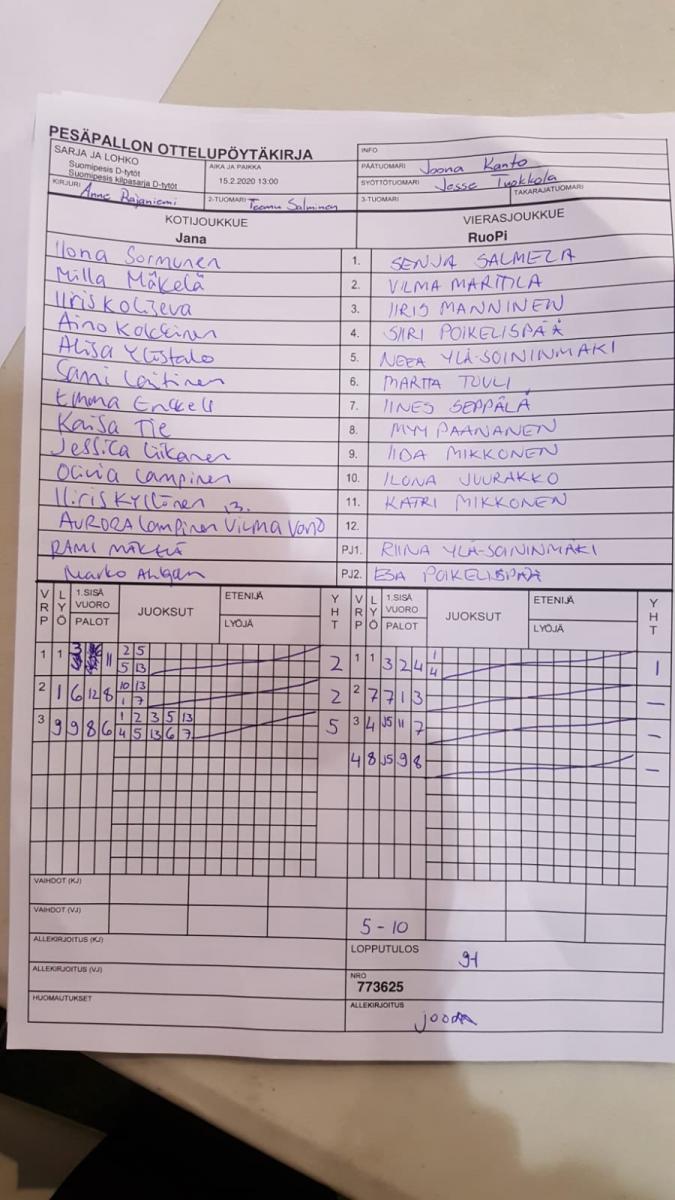 PESÄPALLON OTTELUPÖYTÄKIRJA
SARJA JA LOHKO
Suomipesis D-tytöt
Suomipesis kilpasarja D-tytöt
AIKA JA PAIKKA
15.2.2020 13:00
INFO
PÄÄTUOMARI Joona Kanto
SYÖTTÖTUOMARI Jesse Tuokkola
KIRJURI Anne Rajaniemi
2-TUOMARI Teemu Salminen
3-TUOMARI
TAKARAJATUOMARI
KOTIJOUKKUE
Jana
VIERASJOUKKUE
RuoPi
Ilona Sormunen 1. SENJA SALMELA
Milla Mäkelä 2. VILMA MARTTILA
Iiris 3. IIRIS MANNINEN
Aino Kokkinen 4. SIIRI POIKELISPÄÄ
Alisa Ylistalo 5. NEEA YLÄ-SOININMÄKI
Sami Laitinen 6. MARTTA TUULI
Emma Enckell 7. IINES SEPPÄLÄ
Kaisa Tie 8. MYY PAANANEN
Jessica Liikanen 9. IIDA MIKKONEN
Olivia Lampinen 10. ILONA JUURAKKO
Iiris Kyllönen 13. 11. KATRI MIKKONEN
AURORA Lampinen VILMA 12.
RAMI MÄKELÄ PJ1. RIINA YLÄ-SOININMÄKI
Marko Ahlgren PJ2. ESA POIKELISPÄÄ
VRP LYÖ 1.SISÄ VUORO PALOT JUOKSUT ETENIJÄ LYÖJÄ YHT VRP LYÖ 1.SISÄ VUORO PALOT JUOKSUT ETENIJÄ LYÖJÄ YHT
1 1 3 11 2 5 2 1 1 3 2 4 1 1
5 13 4
2 1 6 12 8 10 13 2 2 7 7 1 3 –
1 7
3 9 9 8 6 1 2 3 5 13 5 3 4 15 11 7 –
4 5 13 6 7
4 8 15 9 8 –
VAIHDOT (KJ)
VAIHDOT (VJ)
5 - 10
ALLEKIRJOITUS (KJ)
LOPPUTULOS 9-1
ALLEKIRJOITUS (VJ)
NRO
773625
HUOMAUTUKSET
ALLEKIRJOITUS
joona